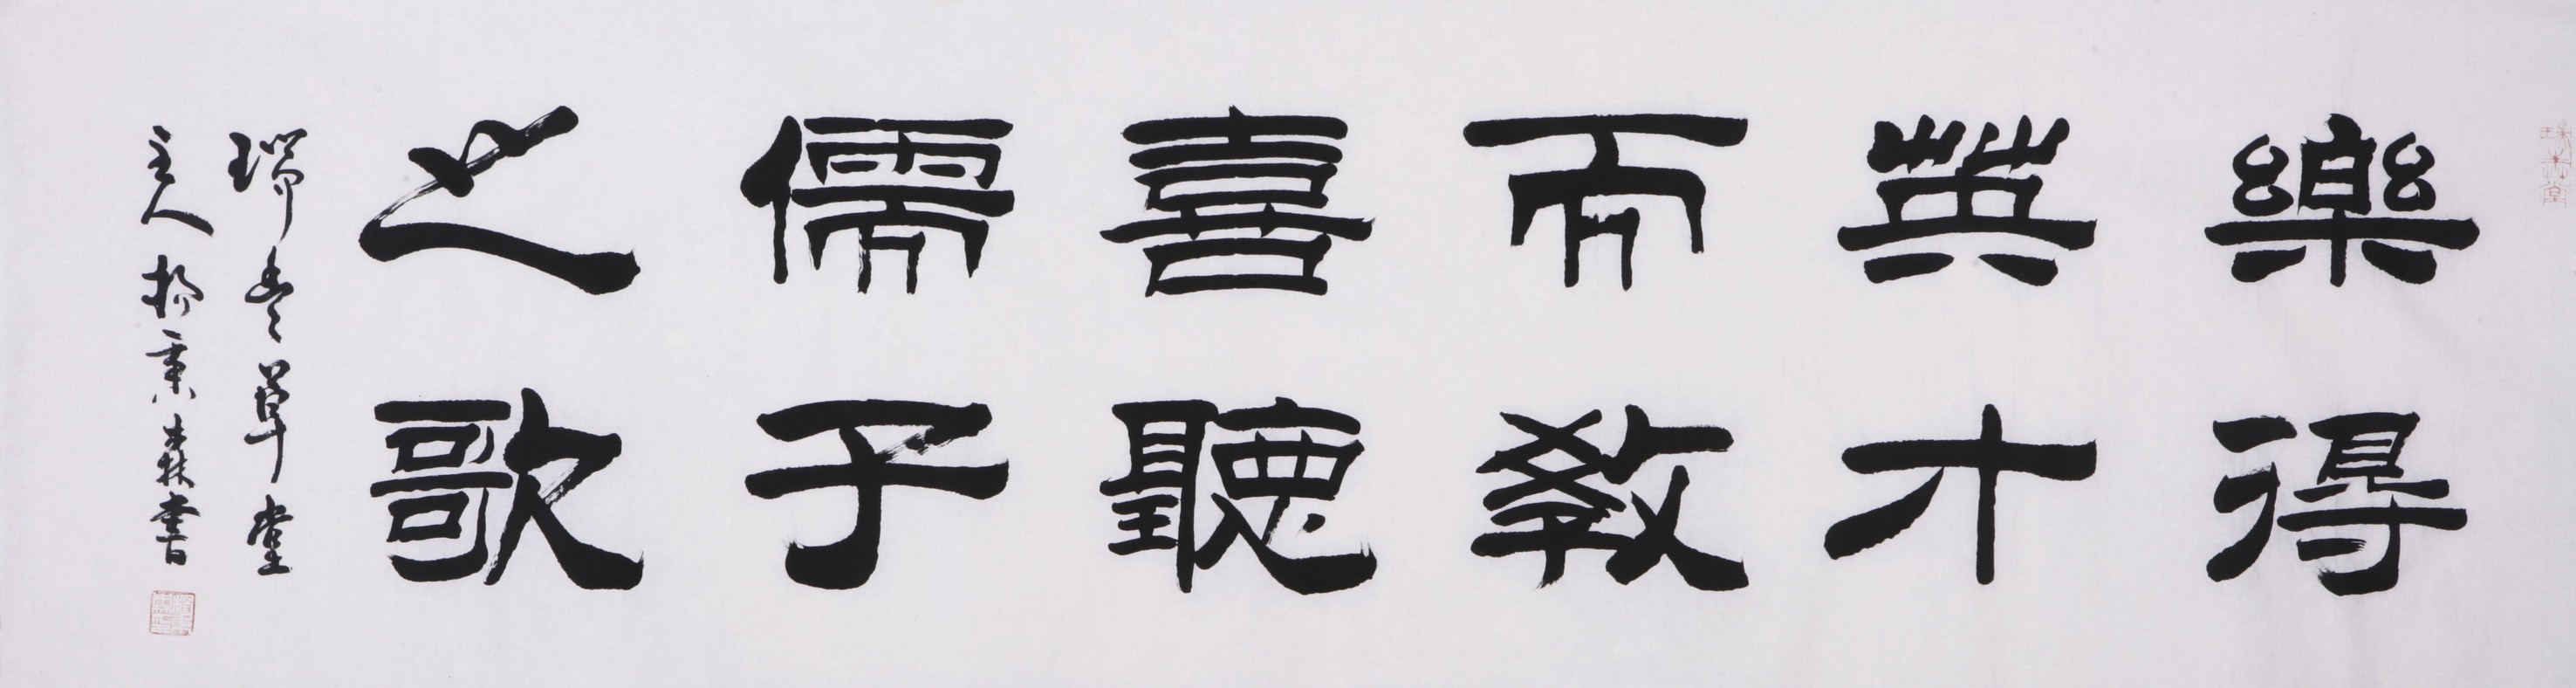 樂得
英才
而教
喜聽
儒子
之歌
瑞丰草堂
主人楊秉森書